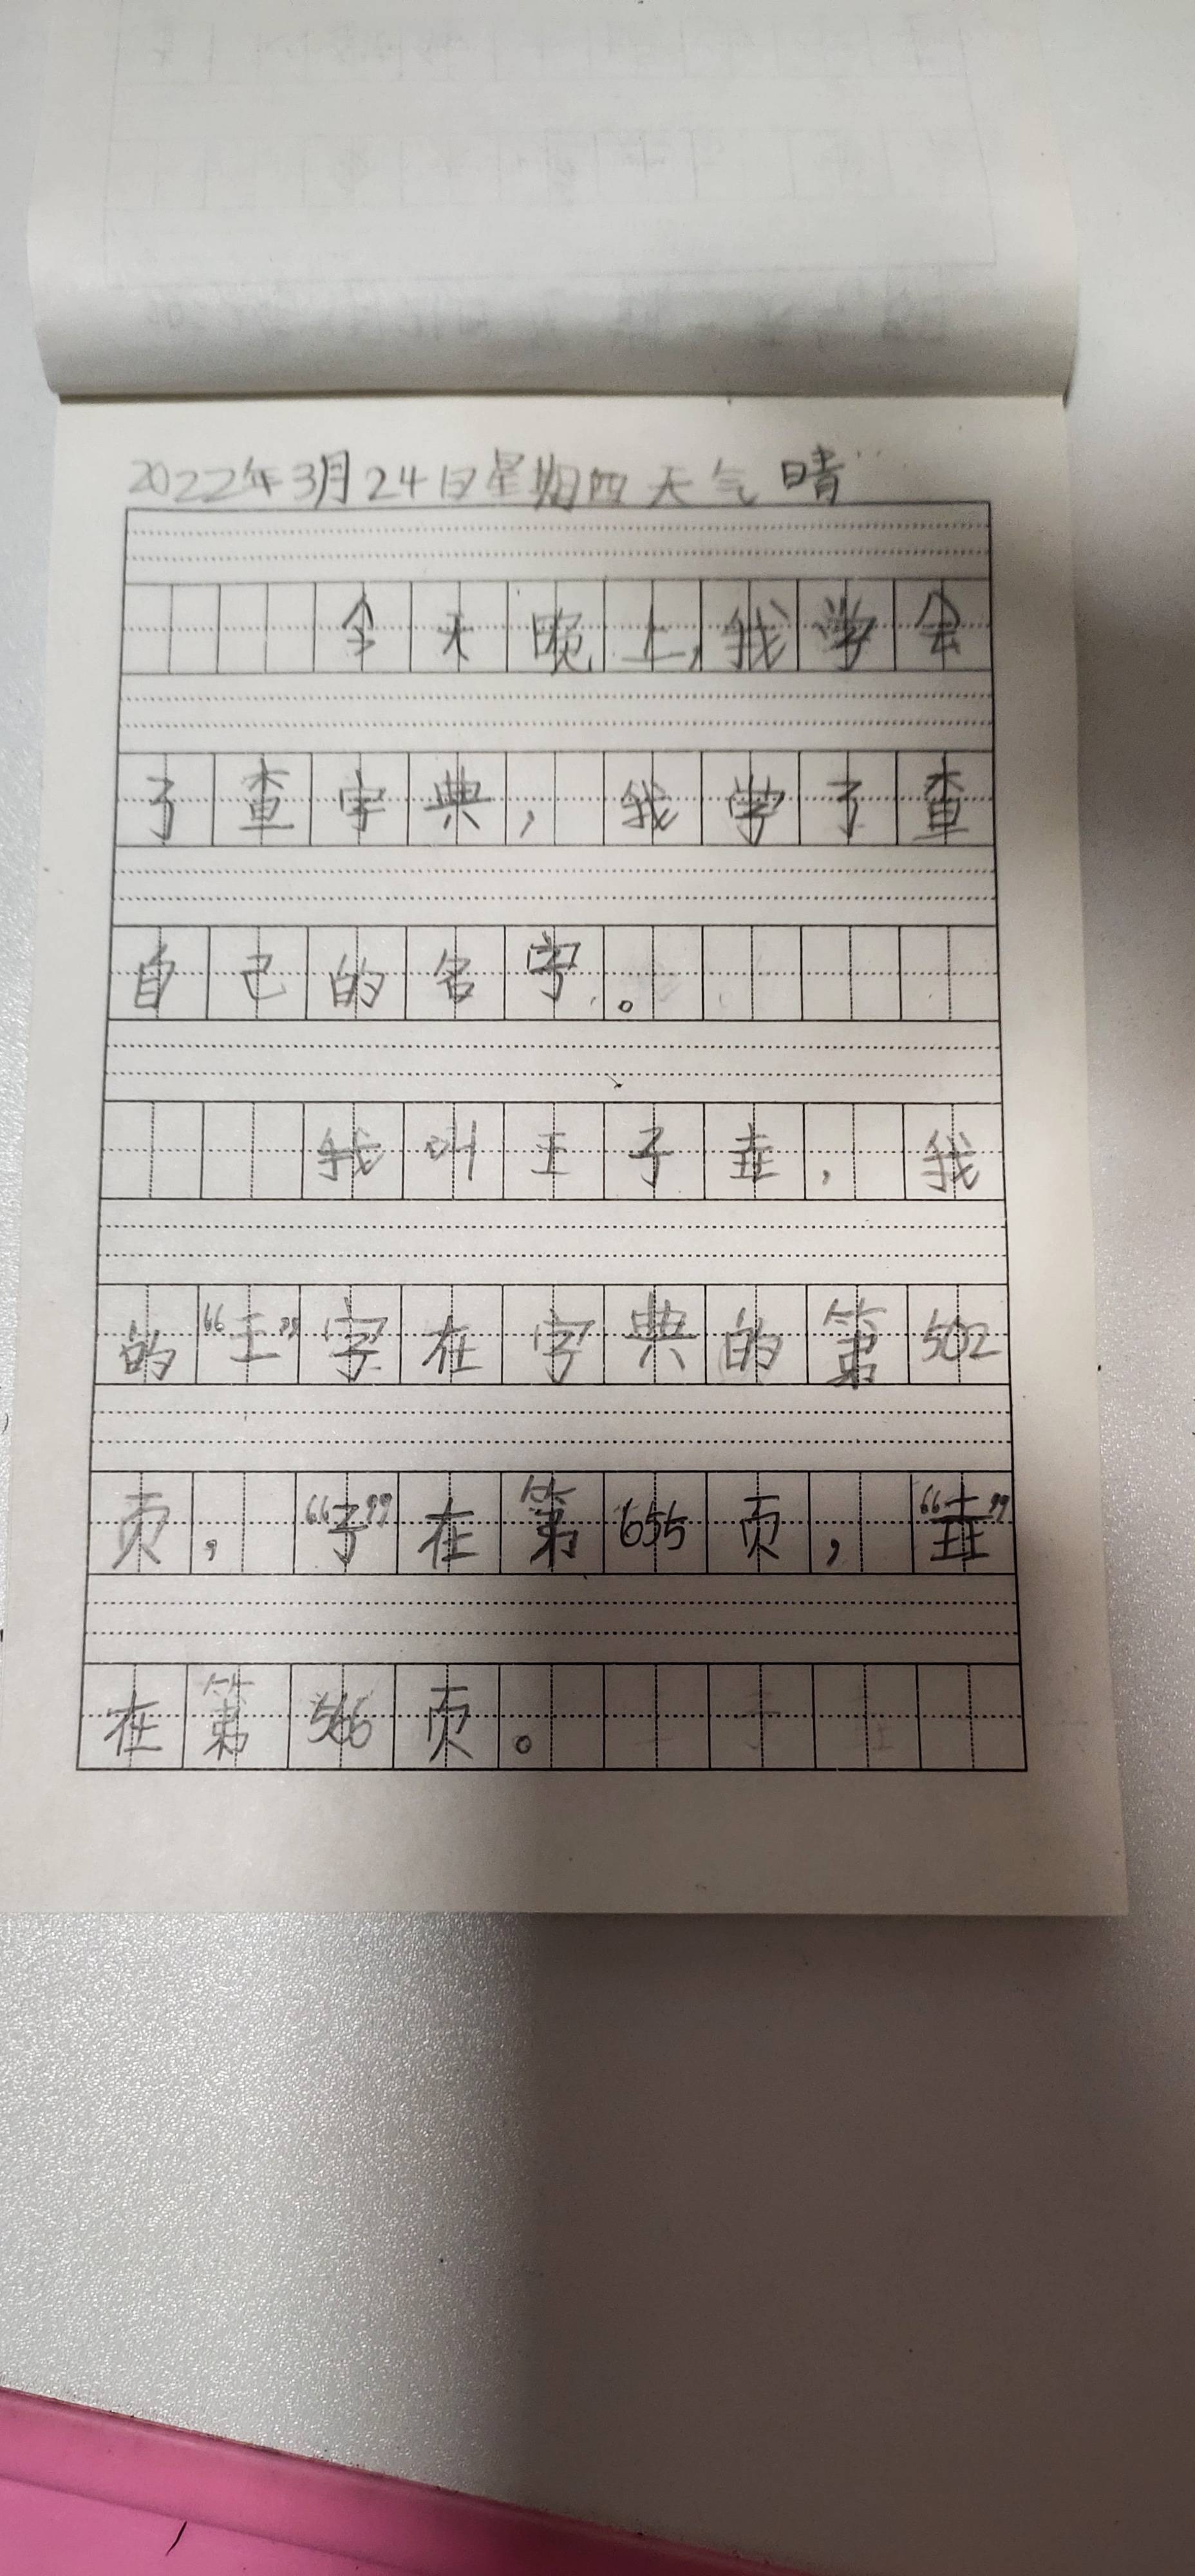 2022年3月24日星期四天气晴
今天晚上,我学会
了查字典，我学了查
自己的名字。
我叫王子垚，我
的“王”字在字典的第502
页，“子”在第655页，“垚”
在第566页。